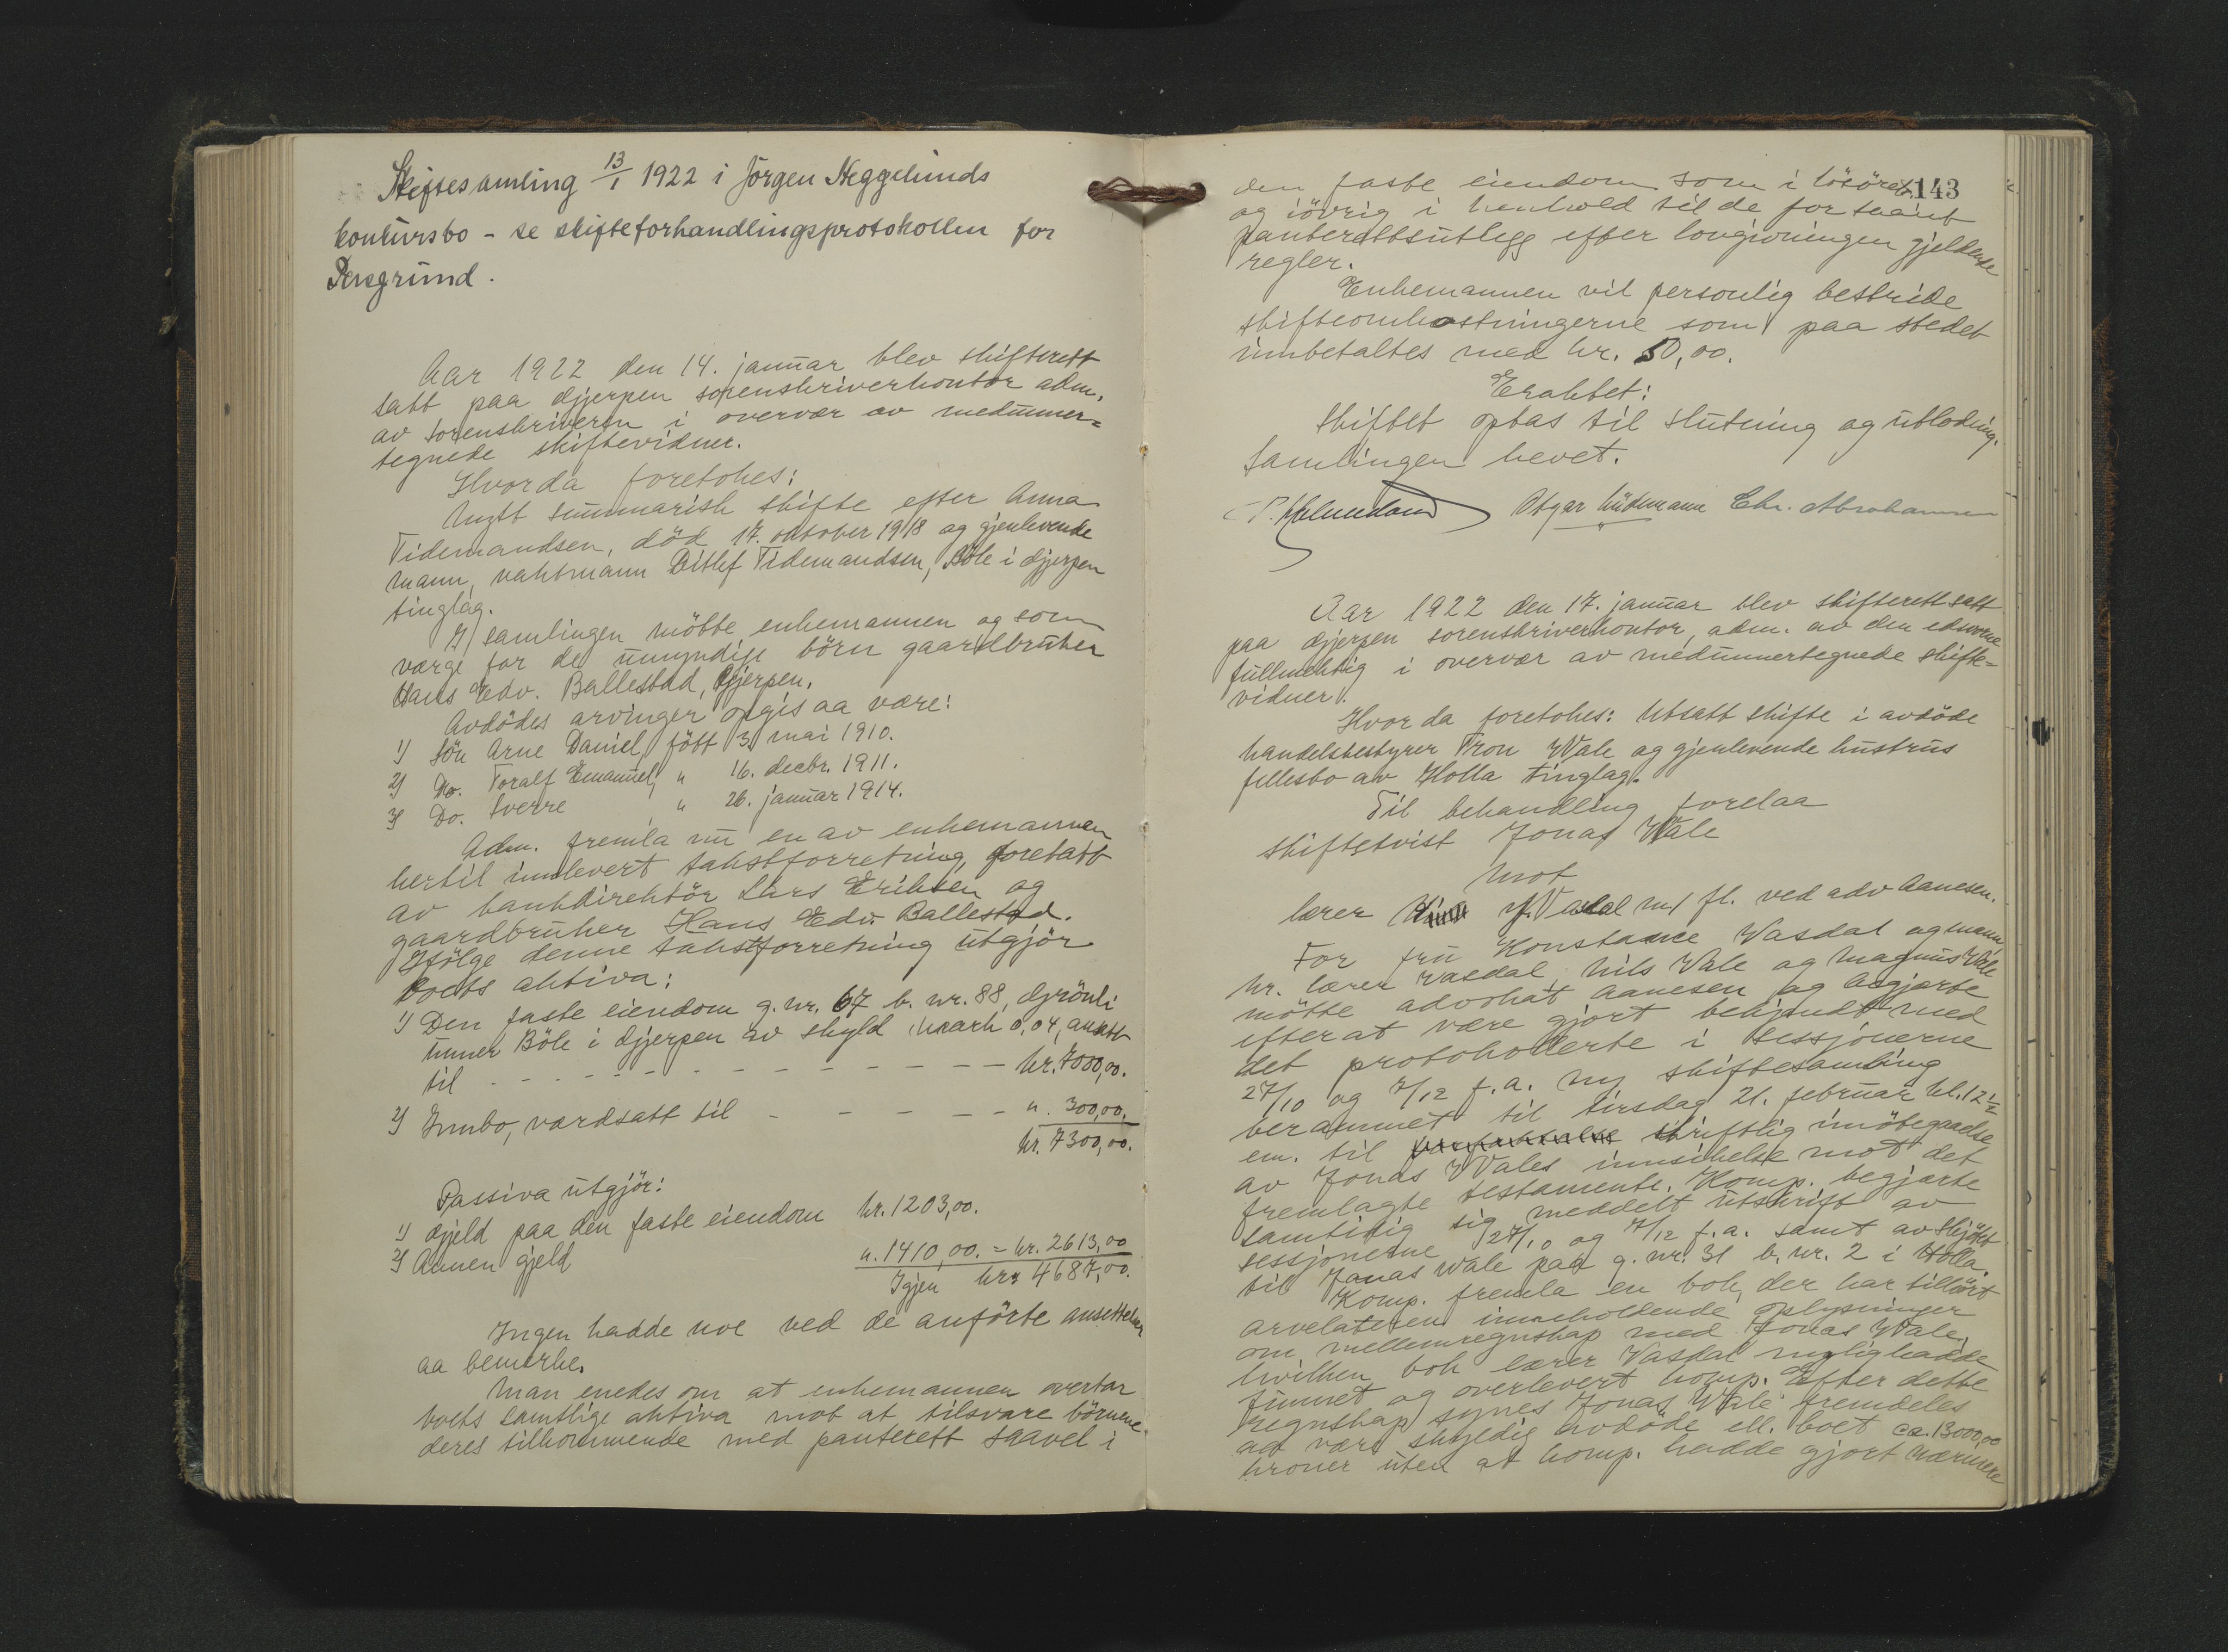 Skiftesamling 13/1 1922 i Jörgen Neggelunds
konkursbo - se skifteforhandlingsprotokollen for
Porsgrund.
Aar 1922 den 14. januar blev skifterett
satt paa Gjerpen sorenskriverkontor adm.
av sorenskriveren i overvær av medunner-
tegnede skiftevidner.
Hvorda foretokes:
Nytt summarisk skifte efter Anna
Tidemandsen, död 17. oktober 1918 og gjenlevende
mann, vaktmann Ditlef Tidemandsen, Böle i Gjerpen
tinglag.
I samlingen mötte enkemannen og som
værge for de umyndige börn gaardbruker
Hans Edv. Ballestad, Gjerpen.
Avdödes arvinger opgis aa være:
1) Sön Arne Daniel, fött 3. mai 1910.
2) Do. Toralf Emanuel, " 16. decbr. 1911.
3) Do. Sverre " 26. januar 1914.
Adm. fremla nu en av enkemannen
hertil innlevert takstforretning, foretatt
av bankdirektör Lars Eriksen og
gaardbruker Hans Edv. Ballestad.
Ifölge denne takstforretning utgjör
boets aktiva:
1) Den faste eiendom g. nr. 67 b. nr. 88, Grönli
unner Böle i Gjerpen av skyld mark 0,04, ansatt
til - - - - - - - - - - kr. 7000,00.
2) Innbo, værdsatt til - - - - - " 300,00.
kr. 7300,00.
Passiva utgjör:
1) Gjeld paa den faste eiendom kr. 1203,00.
2) Annen gjeld " 1410,00. = kr. 2613,00
Igjen kr. 4687,00.
Ingen hadde noe ved de anförte ansettelser
aa bemerke.
Man enedes om at enkemannen overtar
boets samtlige aktiva mot at tilsvare börnene
deres tilkommende med panterett saavel i
143
den faste eiendom som i lösöret
og iövrig i henhold til de for saant
panterettsutlegg efter lovgivningen gjeldende
regler.
Enkemannen vil personlig bestride
skifteomkostningerne som paa stedet
innbetaltes med kr. 50,00.
Eraktet:
Skiftet optas til slutning og utlodning.
Samlingen hevet.
Asgar Chr. Abrahamsen
Aar 1922 den 17. januar blev skifterett satt
paa Gjerpen sorenskriverkontor, adm. av den edsvorne
fullmektig i overvær av medunnertegnede skifte-
vidner.
Hvor da foretokes: Utsatt skifte i avdöde
handelsbestyrer Tron Wale og gjenlevende hustrus
fellesbo av Holla tinglag.
Til behandling forelaa
skiftetvist Jonas Wale
mot
lærer Vasdal m/ fl. ved adv Aanesen.
For fru Konstance Vasdal og mann
hr. lærer Vasdal, Nils Wale og Magnus Wale
mötte advokat Aanesen og begjærte
efter at være gjort bekjendt med
det protokollerte i sessjonerne
27/10 og 7/12 f.a. ny skiftesamling
berammet til tirsdag 21. februar kl. 12 1/2
em. til skriftlig imötegaaelse
av Jonas Wales innsikelse mot det
fremlagte testamente. Komp. begjærte
samtidig sig meddelt utskrift av
sessjonerne 27/10 og 7/12 f.a. samt av skjötet
til Jonas Wale paa g. nr. 31 b. nr. 2 i Holla.
Komp. fremla en bok, der har tilhört
arvelateren inneholdende oplysninger
om mellemregnskap med Jonas Wale,
hvilken bok lærer Vasdal nylig hadde
funnet og overlevert komp. Efter dette
regnskap synes Jonas Wale fremdeles
aa være skyldig avdöde ell. boet ca. 13000,00
kroner uten at komp. hadde gjort nærmere